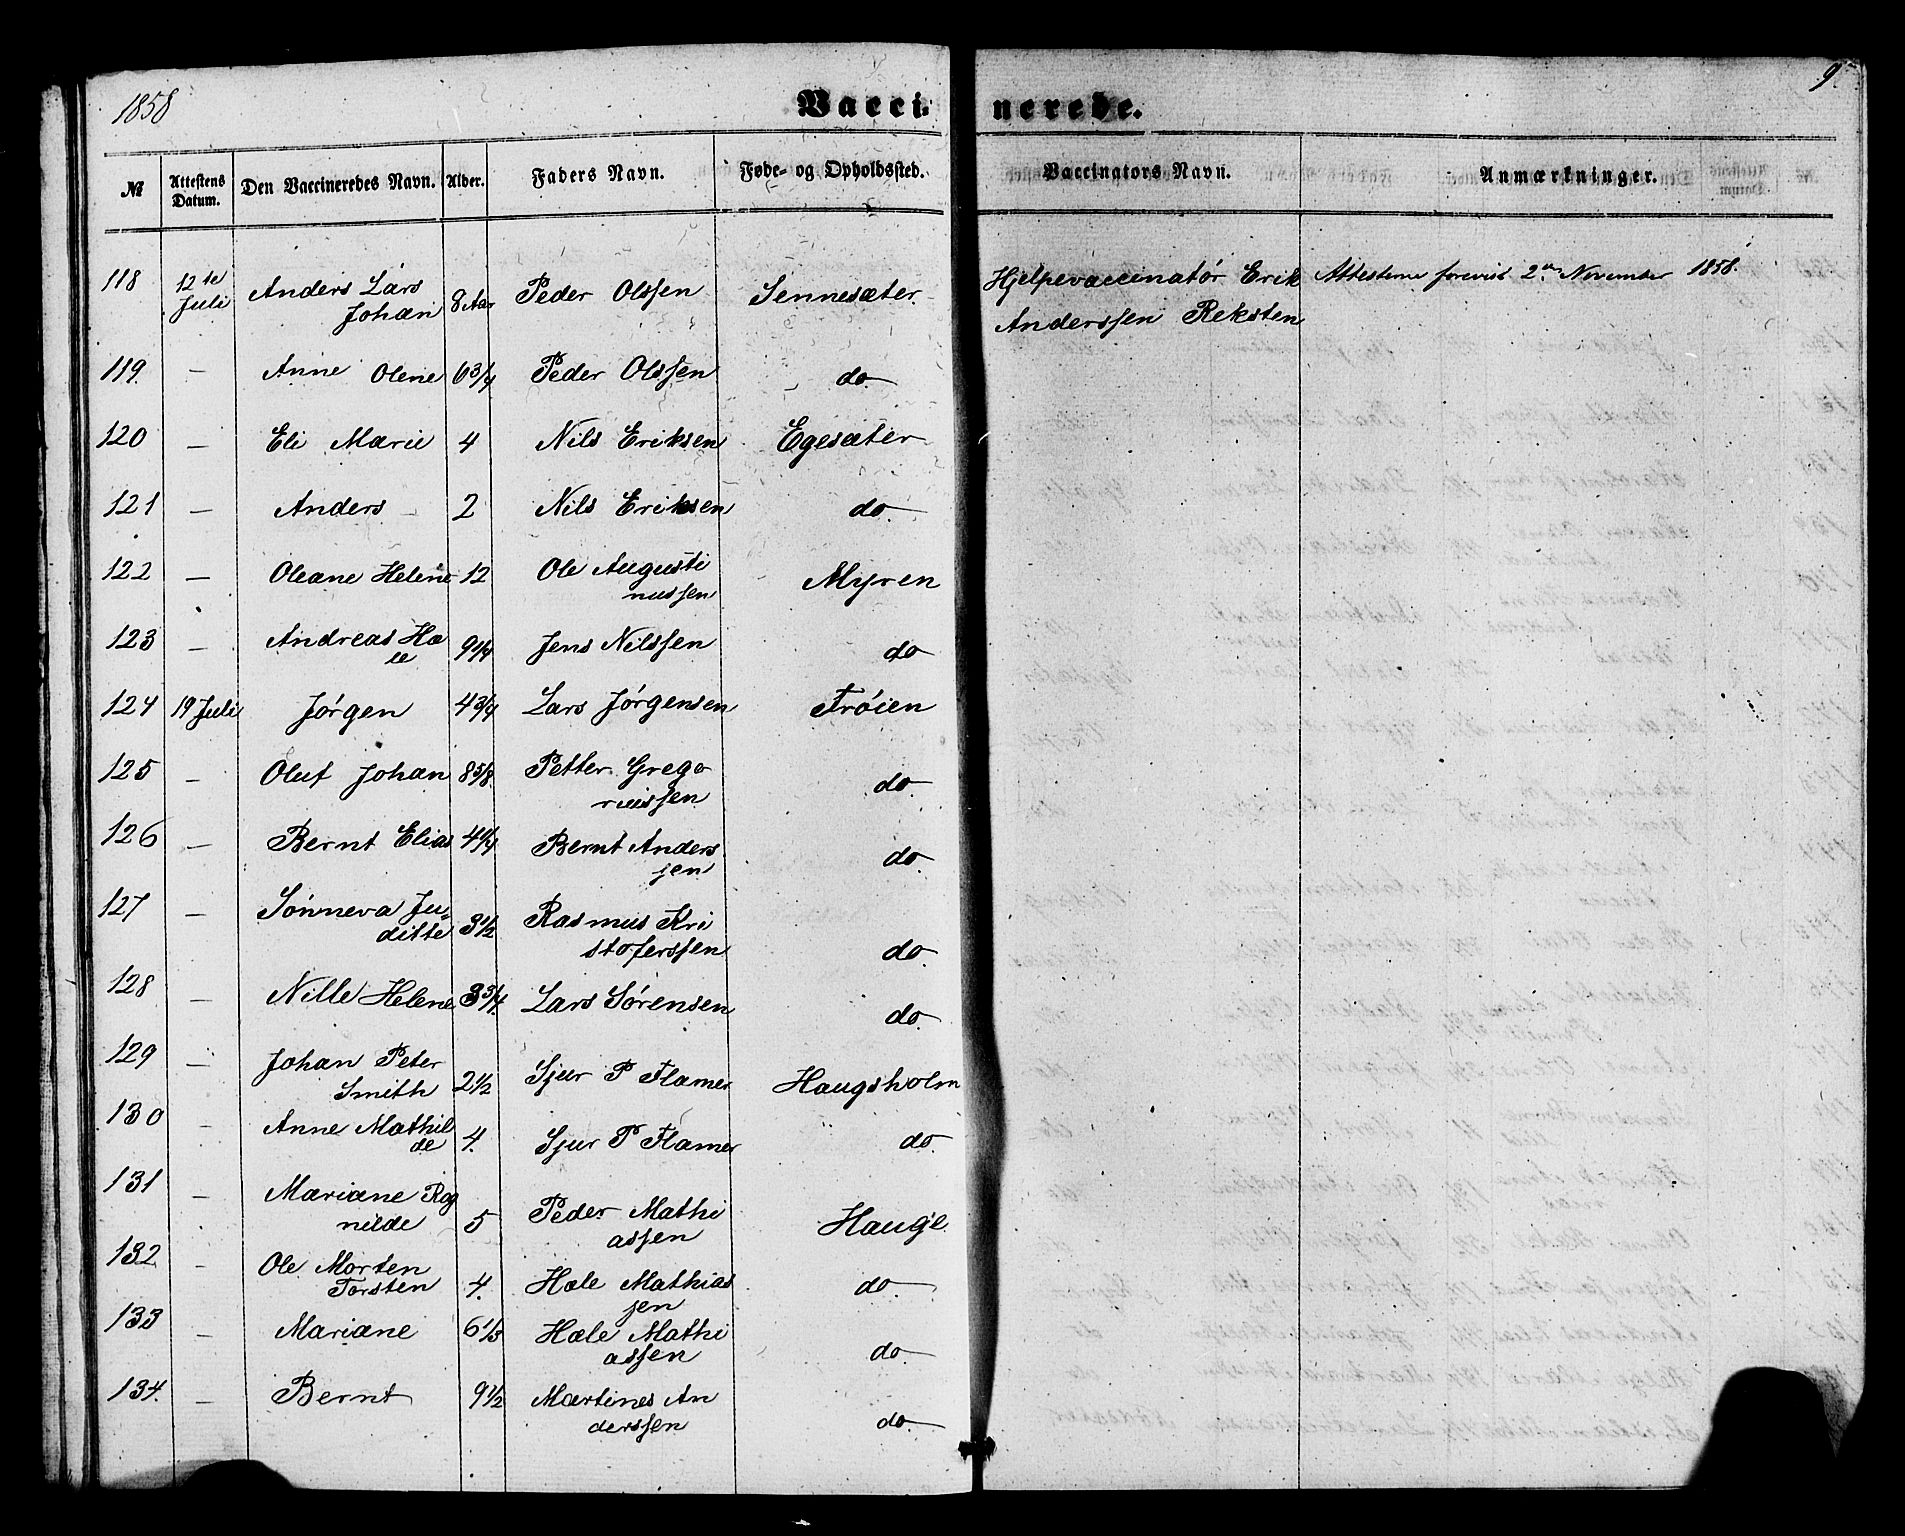 1858
Vacci-
nerede.
9
№ Attestens Datum. Den Vaccineredes Navn. Alder. Faders Navn. Føde- og Opholdssted. Vaccinators Navn. Anmærkninger.
118 12te Juli Anders Lars Johan 8 Aar Peder Olssen Sennesæter Hjelpevaccinatør Erik Anderssen Reksten Attesterne forevist 2den November 1858.
119. — Anne Olene 6 3/4 Peder Olssen do.
120 — Eli Marie 4 Nils Eriksen Egesæter
121 — Anders 2 Nils Eriksen do.
122 — Oleane Helene 12 Ole Augusti nussen Myren
123 — Andreas Hæ le 9 1/4 Jens Nilssen do
124 19 Juli Jørgen 4 3/4 Lars Jørgensen Trøien
125 — Oluf Johan 8 5/8 Petter Grego riussen do.
126 — Bernt Elias 4 1/4 Bernt Anders sen do.
127 — Sønneva Ju- ditte 3 1/2 Rasmus Kri stoferssen do.
128 — Nille Helene 3 3/4. Lars Sørensen do.
129 — Johan Peter Smith 2 1/2 Sjur P Flamer Haugsholm
130 — Anne Mathil de 4. Sjur P Flamer do.
131 — Mariane Rag nilde 5 Peder Mathi assen Hauge
132 — Ole Morten Torsten 4. Hæle Mathias sen do.
133 — Mariane 6 1/3 Hæle Mathi assen do.
134. — Bernt 9 1/2 Martines An derssen do.